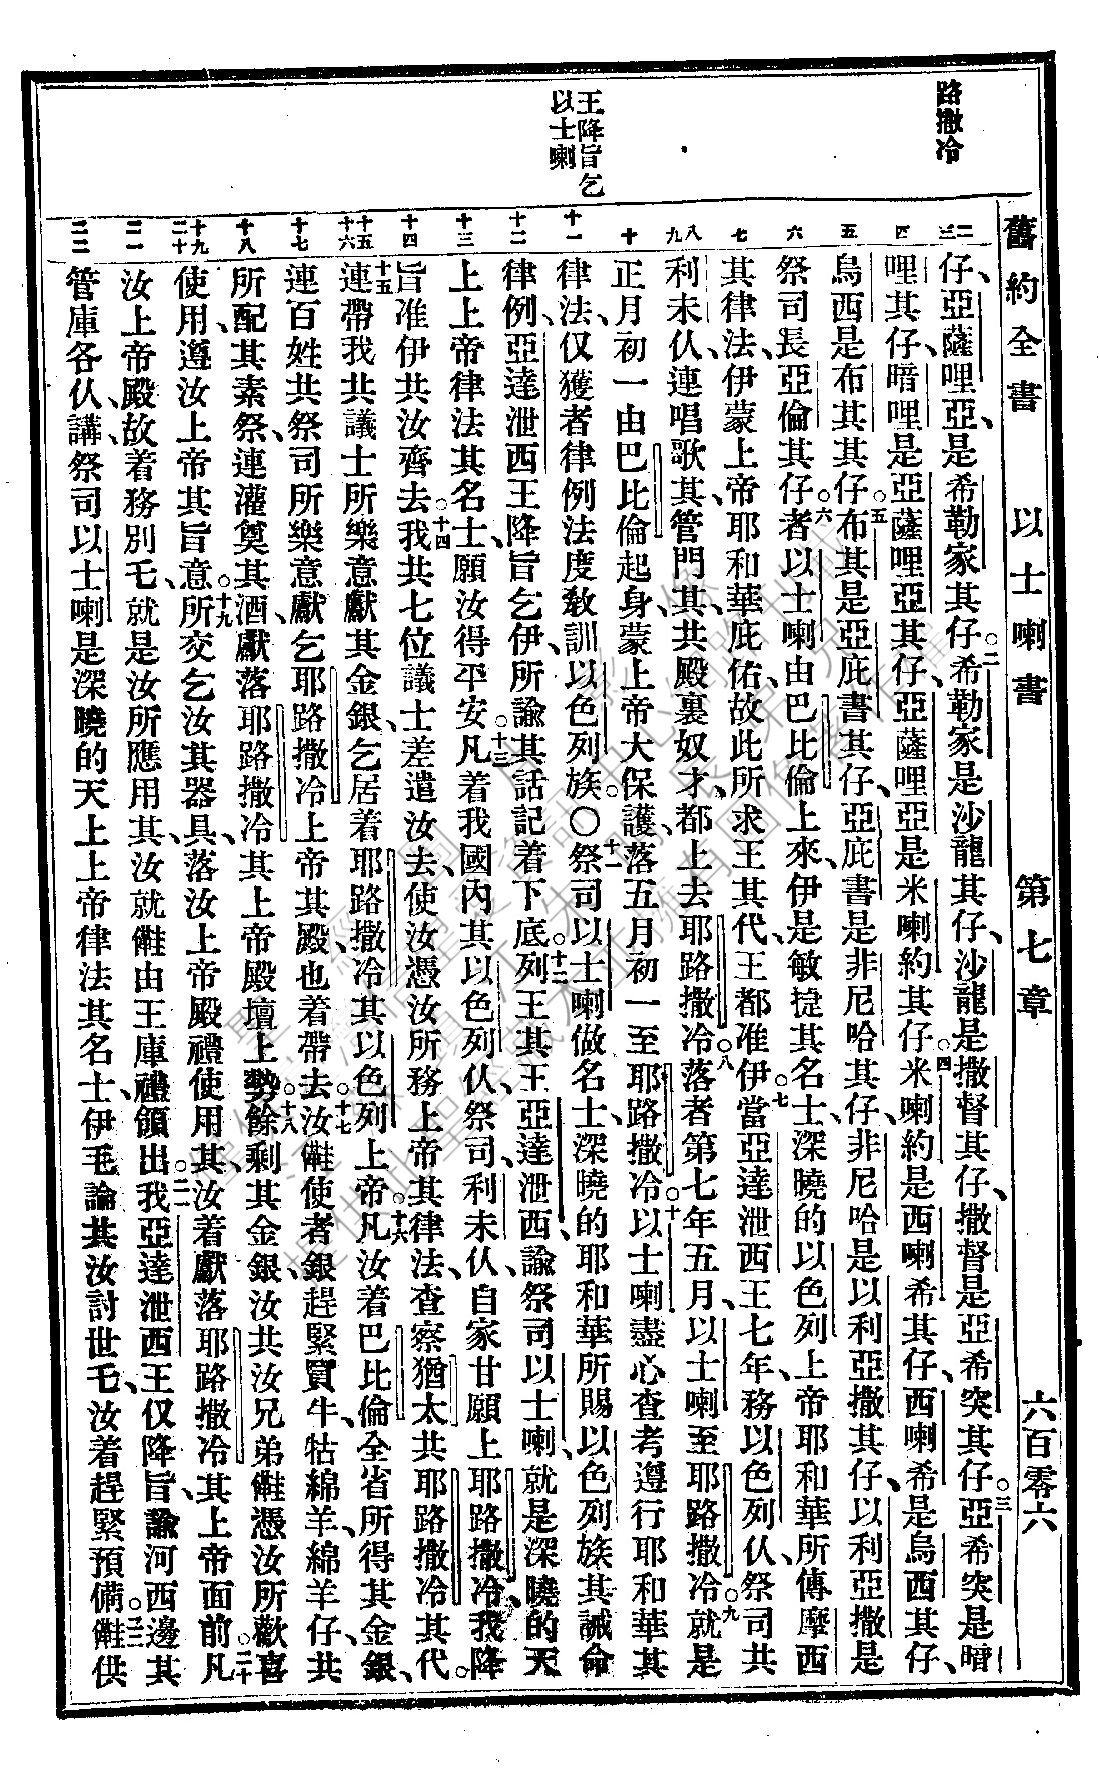 舊約全書 以士喇書 第七章 六百零六
路撒冷
王降旨乞
以士喇
二 三 四 五 六 七 八 九 十 十一 十二 十三 十四 十五 十六 十七 十八 十九 二十 二一 二二
仔、亞薩哩亞、是希勒家其仔。二希勒家是沙龍其仔、沙龍是撒督其仔、撒督是亞希突其仔。三亞希突是暗
哩其仔、暗哩是亞薩哩亞其仔、亞薩哩亞是米喇約其仔。四米喇約是西喇希其仔、西喇希是烏西其仔、
烏西是布其其仔。五布其是亞庇書其仔、亞庇書是非尼哈其仔、非尼哈是以利亞撒其仔、以利亞撒是
祭司長亞倫其仔。六者以士喇由巴比倫上來、伊是敏捷其名士、深曉的以色列上帝耶和華所傳摩西
其律法、伊蒙上帝耶和華庇佑、故此所求王其代、王都准伊。七當亞達泄西王七年、務以色列仈、祭司共
利未仈、連唱歌其、管門其、共殿裏奴才、都上去耶路撒冷。八落者第七年五月、以士喇至耶路撒冷。九就是
正月初一由巴比倫起身、蒙上帝大保護、落五月初一至耶路撒冷。十以士喇盡心查考遵行耶和華其
律法、仅獲者律例法度教訓以色列族。〇十一祭司以士喇做名士、深曉的耶和華所賜以色列族其誡命
律例、亞達泄西王降旨乞伊、所諭其話記着下底。十二列王其王亞達泄西、諭祭司以士喇、就是深曉的天
上上帝律法其名士、願汝得平安。十三凡着我國內其以色列仈、祭司、利未仈、自家甘願上耶路撒冷、我降
旨准伊共汝齊去。十四我共七位議士差遣汝去、使汝憑汝所務上帝其律法、查察猶太共耶路撒冷其代。
十五連帶我共議士所樂意獻其金銀、乞居着耶路撒冷其以色列上帝。十六凡汝着巴比倫全省所得其金銀、
連百姓共祭司所樂意獻乞耶路撒冷上帝其殿、也着帶去。十七汝㑚使者銀趕緊買牛、牯綿羊、綿羊仔、共
所配其素祭、連灌奠其酒、獻落耶路撒冷其上帝殿壇上。十八勢餘剩其金銀、汝共汝兄弟㑚憑汝所歡喜
使用、遵汝上帝其旨意。十九所交乞汝其器具、落汝上帝殿禮使用其、汝着獻落耶路撒冷其上帝面前。二十凡
汝上帝殿故着務別乇、就是汝所應用其、汝就㑚由王庫禮領出。二一我亞達泄西王仅降旨、諭河西邊其
管庫各仈講、祭司以士喇是深曉的天上上帝律法其名士、伊乇論共汝討世乇、汝着趕緊預備。二二㑚供